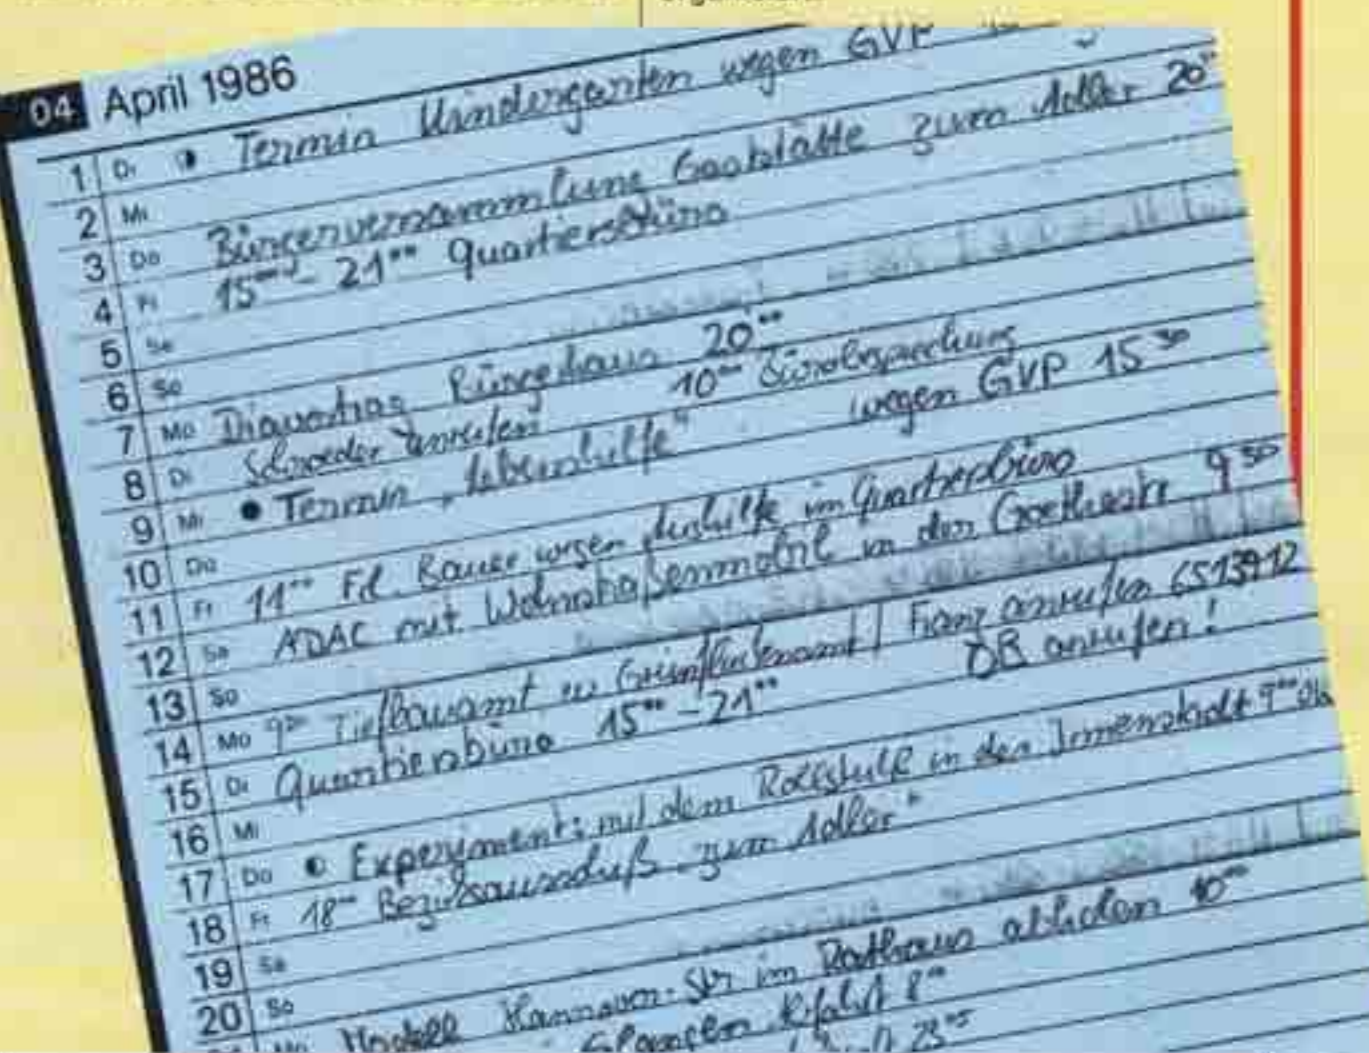 04 April 1986
1 Di Termin Kindergarten wegen GVP
2 Mi
3 Do Bürgerversammlung Gaststätte zum Adler 20°°
4 Fr 15°° - 21°° Quartiersbüro
5 Sa
6 So
7 Mo Diavortrag Bürgerhaus 20°°
8 Di Schroeder anrufen 10°° Bürobesprechung
9 Mi Termin „Lebenshilfe“ wegen GVP 15³⁰
10 Do
11 Fr 11°° Frl. Bauer wegen Aushilfe im Quartierbüro
12 Sa ADAC mit Wohnstraßenmobil in der Goethestr 9³⁰
13 So
14 Mo 9°° Tiefbauamt Grünflächenamt / Franz anrufen 6513912
15 Di Quartiersbüro 15°° - 21°° DB anrufen!
16 Mi
17 Do Experiment: mit dem Rollstuhl in der Innenstadt 9°°
18 Fr 18°° Bezirksausschuß „zum Adler“
19 Sa
20 So
Mo Modell Hannover. Str im Rathaus abholen 10°°
Erlangen Abfahrt 8°°
23°⁵